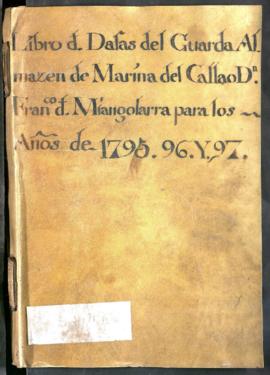 Libro d. Dasas del Guarda Al-
mazen de Marina del Callao Dn.
Frano. d. Miangolarra para los ~~
Años de 1795. 96. Y. 97.